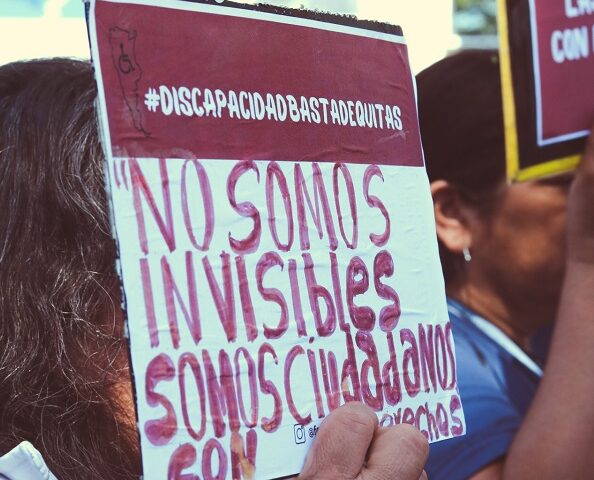 #DISCAPACIDADBASTADEQUITAS
"NO SOMOS
INVISIBLES
SOMOS CIUDADANOS
CON derechos
CON